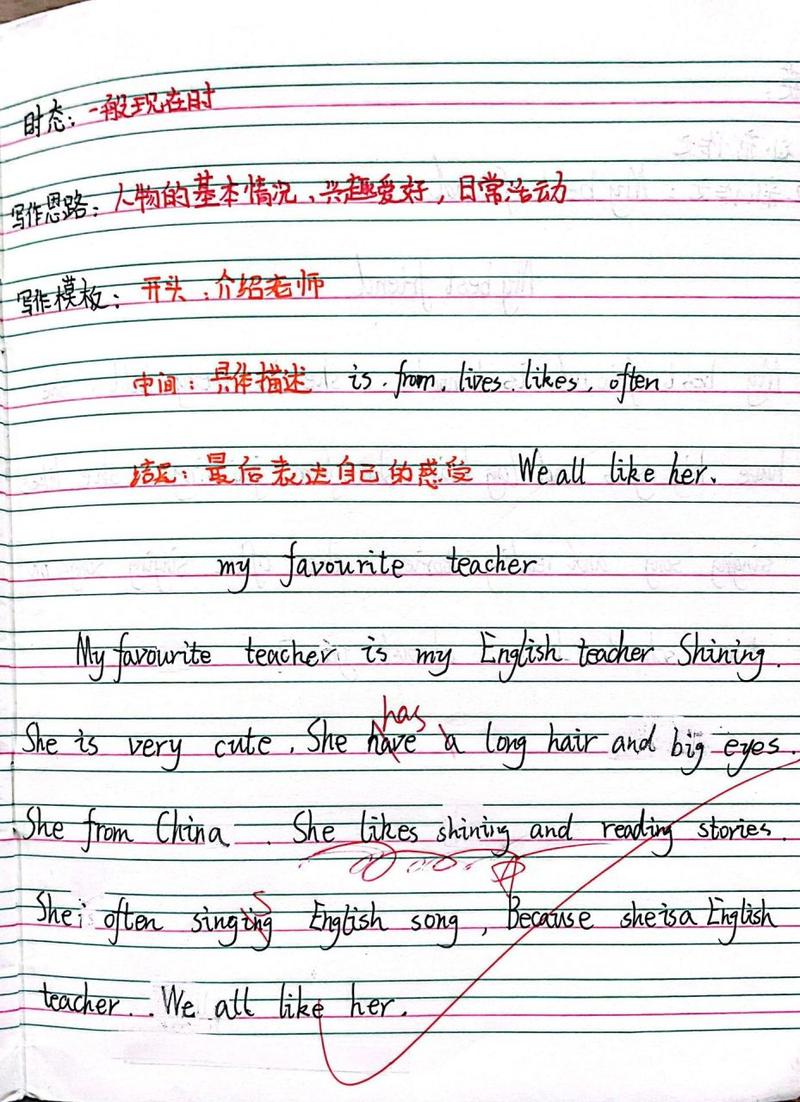 时态：一般现在时
写作思路：人物的基本情况、兴趣爱好，日常活动
写作模板：开头：介绍老师
中间：具体描述 is . from . lives . likes . often
结尾：最后表达自己的感受 We all like her.
my favourite teacher
My favourite teacher is my English teacher Shining.
has
She is very cute . She have a long hair and big eyes.
She from China . She likes shining and reading stories.
s
She often singing English song , Because she is a English
teacher.. We all like her.